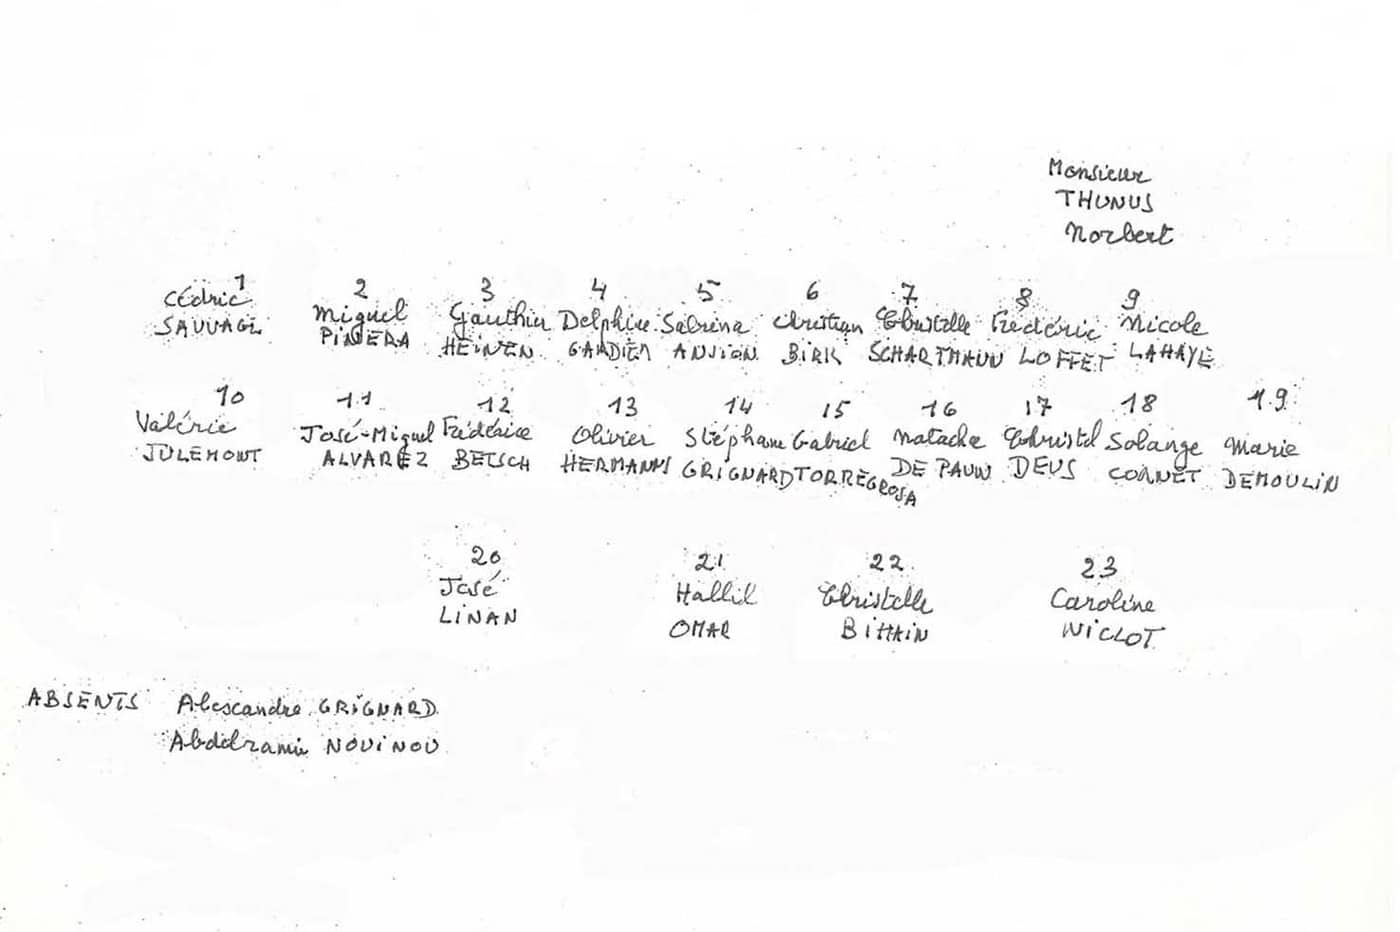 Monsieur
THUNUS
Norbert
1 2 3 4 5 6 7 8 9
Cédric Miguel Gauthier Delphine Sabrina Christian Christelle Frédéric Nicole
SAUVAGE PINERA HEINEN GARDIER ANSION BIRK SCHARTMANN LOFFET LAHAYE
10 11 12 13 14 15 16 17 18 19
Valérie José-Miguel Frédérice Olivier Stéphane Gabriel Natacha Christel Solange Marie
JULEMONT ALVAREZ BETSCH HERMANNS GRIGNARD TORREGROSA DE PAUW DEUS CORNET DEMOULIN
20 21 22 23
José Hallil Christelle Caroline
LINAN OMAR BIHAIN NICLOT
ABSENTS Alescandre GRIGNARD
NOUINOU